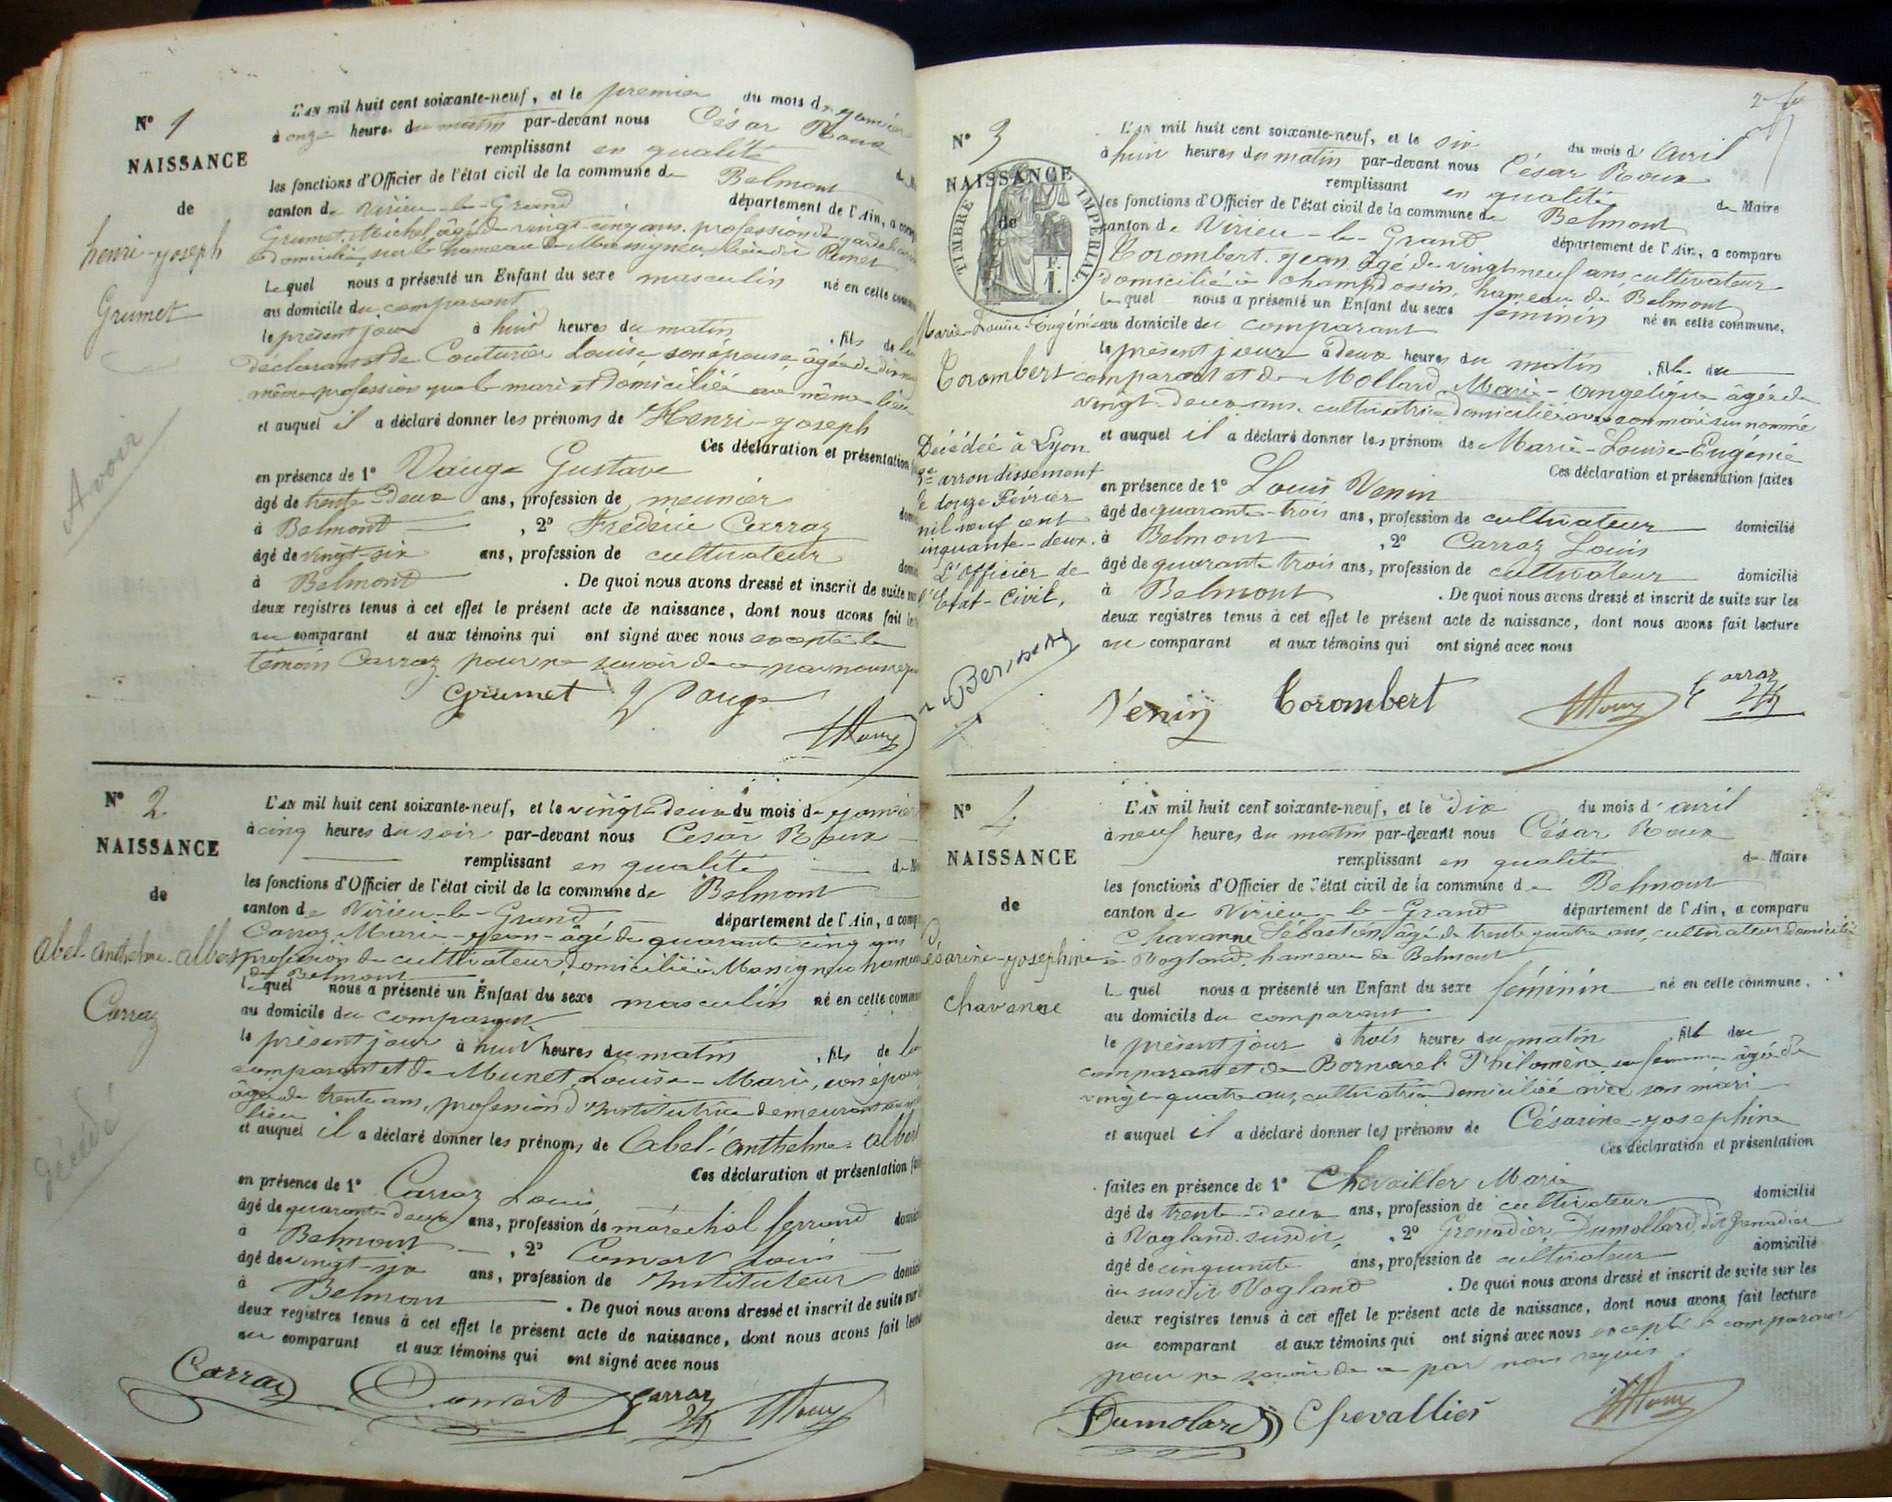 Nº 1
NAISSANCE
de
henri-yoseph
Grumet
A voir
L'AN mil huit cent soixante-neuf, et le premier du mois de
à onze heures du matin par-devant nous César Roux
remplissant en qualité
les fonctions d'Officier de l'état civil de la commune de Belmont
canton de Virieu-le-Grand département de l'Ain, a
Grumet Michel âgé de vingt-cinq ans, profession de
domicilié sur le hameau de Massignieu
Lequel nous a présenté un Enfant du sexe masculin né en cette
au domicile du comparant
le présent jour à huit heures du matin, fils de
déclarant et de Couturier Louise son épouse âgée de
même profession que le mari et domiciliée au même lieu
et auquel il a déclaré donner les prénoms de Henri-yoseph
Ces déclaration et présentation
en présence de 1º Vauge Gustave
âgé de trente-deux ans, profession de meunier
à Belmont, 2º Fréderic Carraz
âgé de vingt six ans, profession de cultivateur
à Belmont. De quoi nous avons dressé et inscrit de suite
deux registres tenus à cet effet le présent acte de naissance, dont nous avons fait
au comparant et aux témoins qui ont signé avec nous excepté le
témoin Carraz pour ne savoir de ce par nous
Grumet Vauge
Roux
Nº 2
NAISSANCE
de
abel-anthelme-albert
Carraz
décédé
L'AN mil huit cent soixante-neuf, et le vingt-deux du mois de yanvier
à cinq heures du soir par-devant nous César Roux
remplissant en qualité
les fonctions d'Officier de l'état civil de la commune de Belmont
canton de Virieu-le-Grand département de l'Ain, a
Carraz, Marie-yean-âgé de quarante cinq ans
profession de cultivateur domicilié à Massignieu hameau
de Belmont
Lequel nous a présenté un Enfant du sexe masculin né en cette
au domicile du comparant
le présent jour à huit heures du matin, fils de
comparant et de Munet, Louise-Marie, son épouse
âgée de trente ans, profession d'Institutrice demeurant
lieu
et auquel il a déclaré donner les prénoms de Abel-anthelme-albert
Ces déclaration et présentation
en présence de 1º Carraz Louis
âgé de quarante deux ans, profession de maréchal ferrand
à Belmont, 2º Louis
âgé de vingt-six ans, profession de Instituteur
à Belmont. De quoi nous avons dressé et inscrit de suite sur
deux registres tenus à cet effet le présent acte de naissance, dont nous avons fait
au comparant et aux témoins qui ont signé avec nous
Carraz Carraz Roux
2
Nº 3
NAISSANCE
de
TIMBRE IMPÉRIAL
1 F.
Marie-Louise-Eugénie
Corombert
Décédée à Lyon
3e arrondissement
le douze Février
mil neuf cent
cinquante-deux.
L'Officier de
l'Etat-Civil,
L'AN mil huit cent soixante-neuf, et le six du mois d'avril
à huit heures du matin par-devant nous César Roux
remplissant en qualité de Maire
les fonctions d'Officier de l'état civil de la commune de Belmont
canton de Virieu-le-Grand département de l'Ain, a comparu
Corombert yean âgé de vingt neuf ans, cultivateur
domicilié à champdossin, hameau de Belmont
Lequel nous a présenté un Enfant du sexe féminin né en cette commune,
au domicile du comparant
le présent jour à deux heures du matin, fille du
comparant et de Mollard Marie-angélique âgée de
vingt-deux ans, cultivatrice domiciliée avec son mari sus nommé
et auquel il a déclaré donner les prénoms de Marie-Louise-Eugénie
Ces déclaration et présentation faites
en présence de 1º Louis Venin
âgé de quarante-trois ans, profession de cultivateur domicilié
à Belmont, 2º Carraz Louis
âgé de quarante trois ans, profession de cultivateur domicilié
à Belmont. De quoi nous avons dressé et inscrit de suite sur les
deux registres tenus à cet effet le présent acte de naissance, dont nous avons fait lecture
au comparant et aux témoins qui ont signé avec nous
Venin Corombert Roux Carraz
Nº 4
NAISSANCE
de
Césarine-yosephine
Chavanne
L'AN mil huit cent soixante-neuf, et le dix du mois d'avril
à neuf heures du matin par-devant nous César Roux
remplissant en qualité de Maire
les fonctions d'Officier de l'état civil de la commune de Belmont
canton de Virieu-le-Grand département de l'Ain, a comparu
Chavanne Sébastien âgé de trente quatre ans, cultivateur domicilié
à Vogland, hameau de Belmont
Lequel nous a présenté un Enfant du sexe féminin né en cette commune,
au domicile du comparant
le présent jour à trois heures du matin, fille du
comparant et de Bornarel Philomène sa femme âgée de
vingt-quatre ans, cultivatrice domiciliée avec son mari
et auquel il a déclaré donner les prénoms de Césarine-yosephine
Ces déclaration et présentation
faites en présence de 1º Chevaillier Marie
âgé de trente-deux ans, profession de cultivateur domicilié
à Vogland susdit, 2º Grenadier Dumollard, dit Grenadier
âgé de cinquante ans, profession de cultivateur domicilié
au susdit Vogland. De quoi nous avons dressé et inscrit de suite sur les
deux registres tenus à cet effet le présent acte de naissance, dont nous avons fait lecture
au comparant et aux témoins qui ont signé avec nous excepté le comparant
pour ne savoir de ce par nous requis.
Dumolard Chevallier Roux